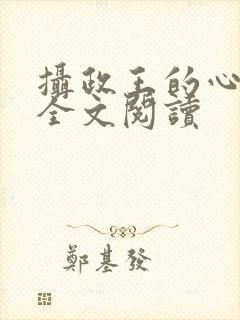 攝政王的心
全文閱讀
鄭基發